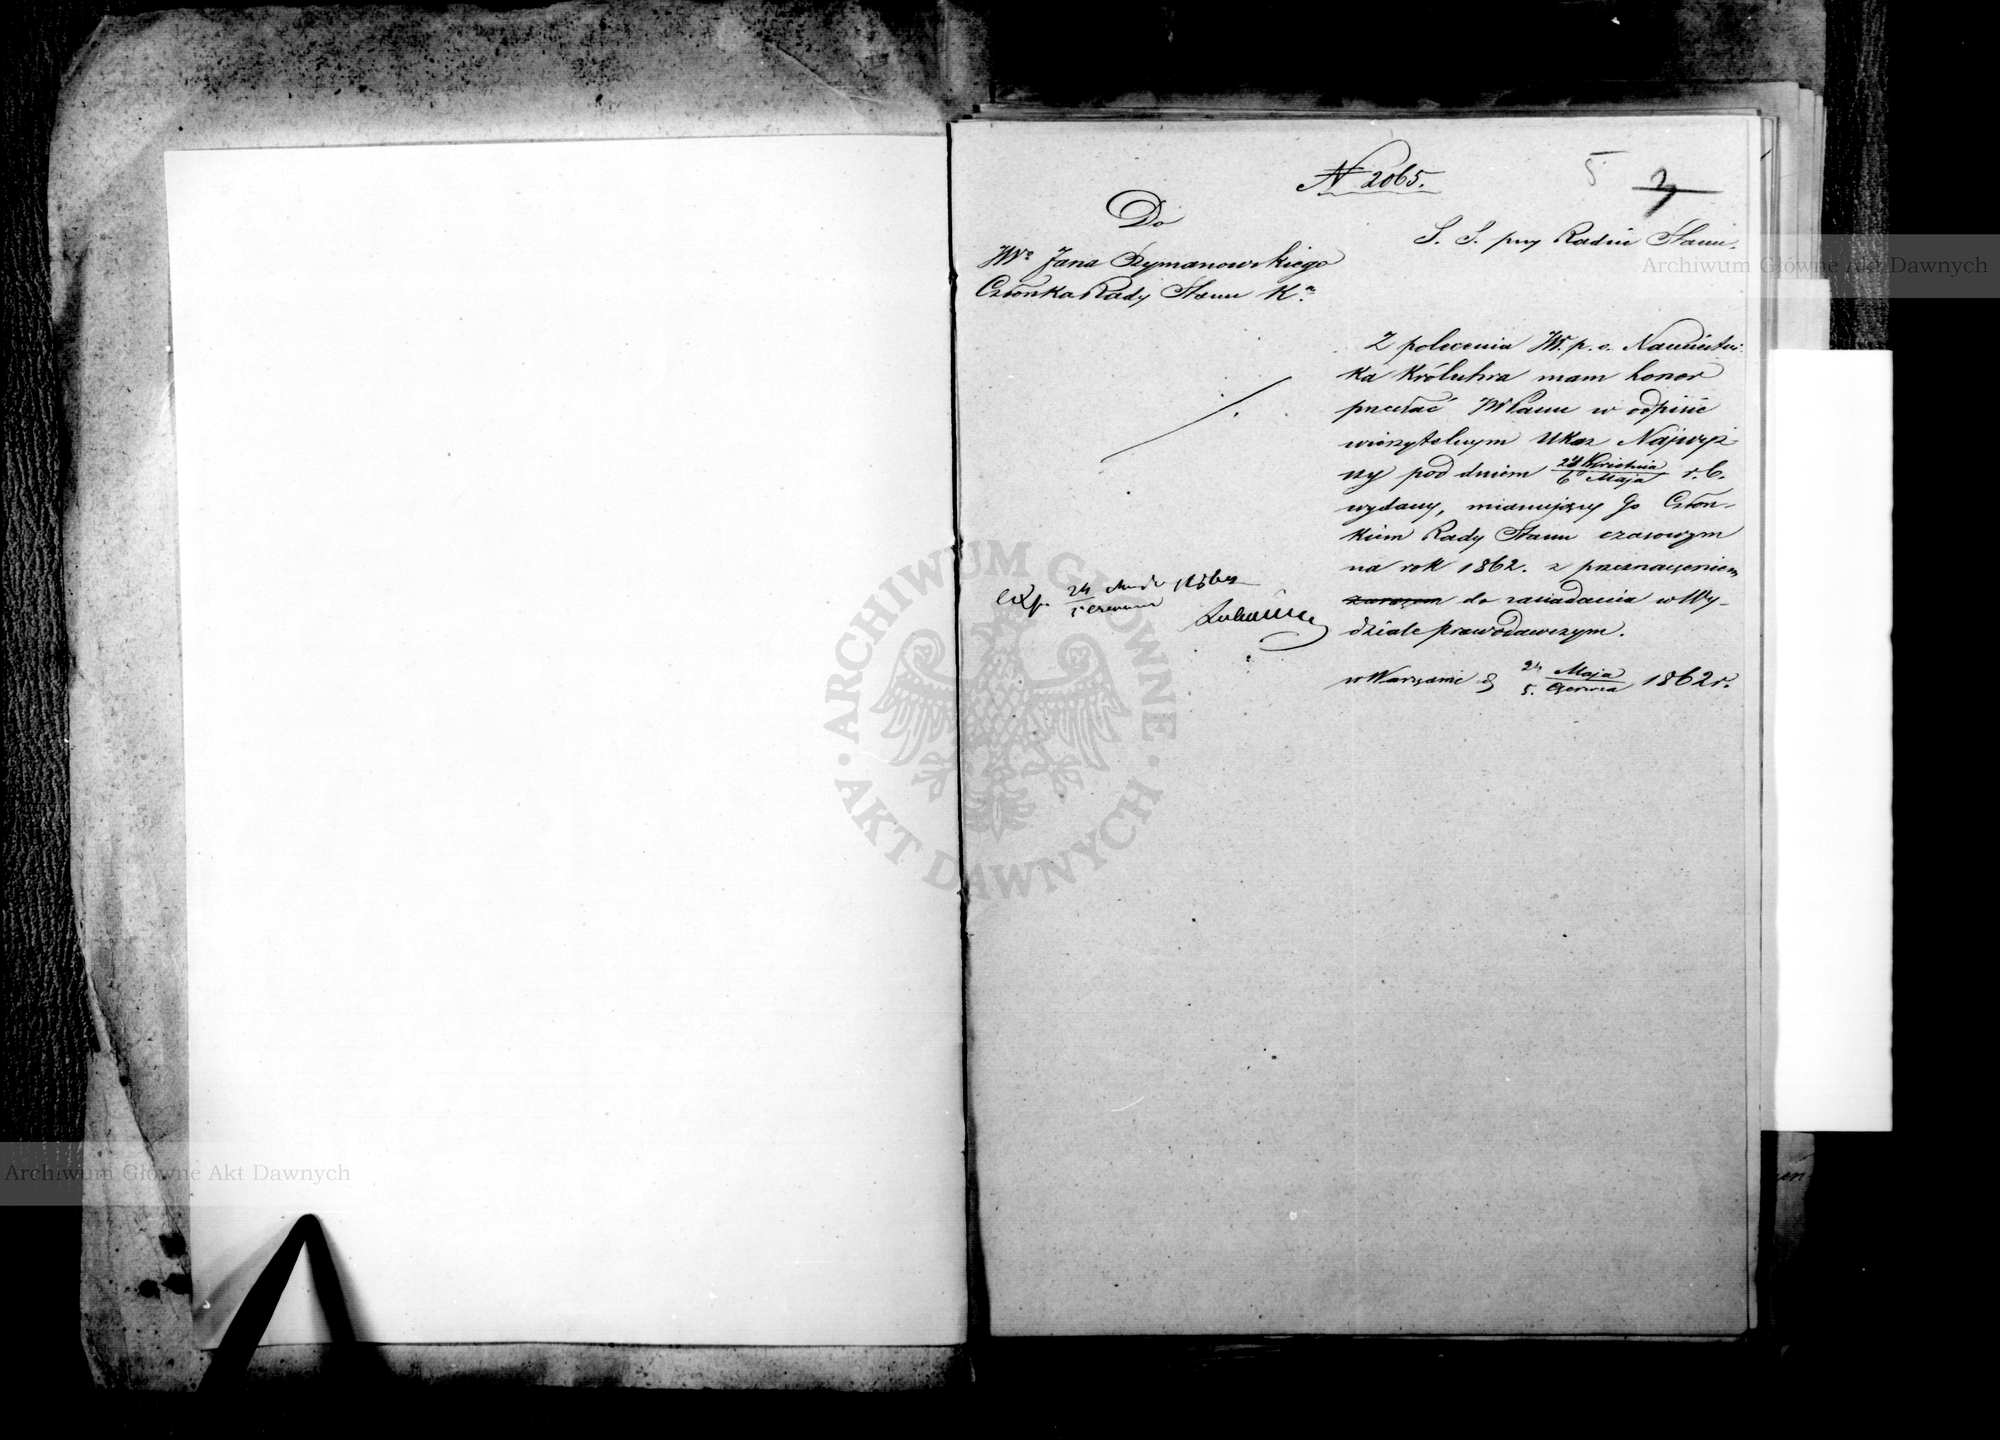 N 2065.
5 3
Do
JWo Jana Szymanowskiego
Członka Rady Stanu K.a
S. S. przy Radzie Stanu.
Z polecenia JW. p. o. Namiestni-
ka Królestwa mam honor
przesłać JWPanu w odpisie
wierzytelnym Ukaz Najwyż-
szy pod dniem 24 Kwietnia / 6 Maja r. b.
wydany, mianujący Go Człon-
kiem Rady Stanu czasowym
na rok 1862. z przeznaczeniem
zarazem do zasiadania w Wy-
dziale prawodawczym.
w Warszawie d 24 Maja / 5. Czerwca 1862 r.
exp. 24 Maja / 5 Czerwca 1862
Archiwum Główne Akt Dawnych
ARCHIWUM GŁÓWNE · AKT DAWNYCH ·
Archiwum Główne Akt Dawnych